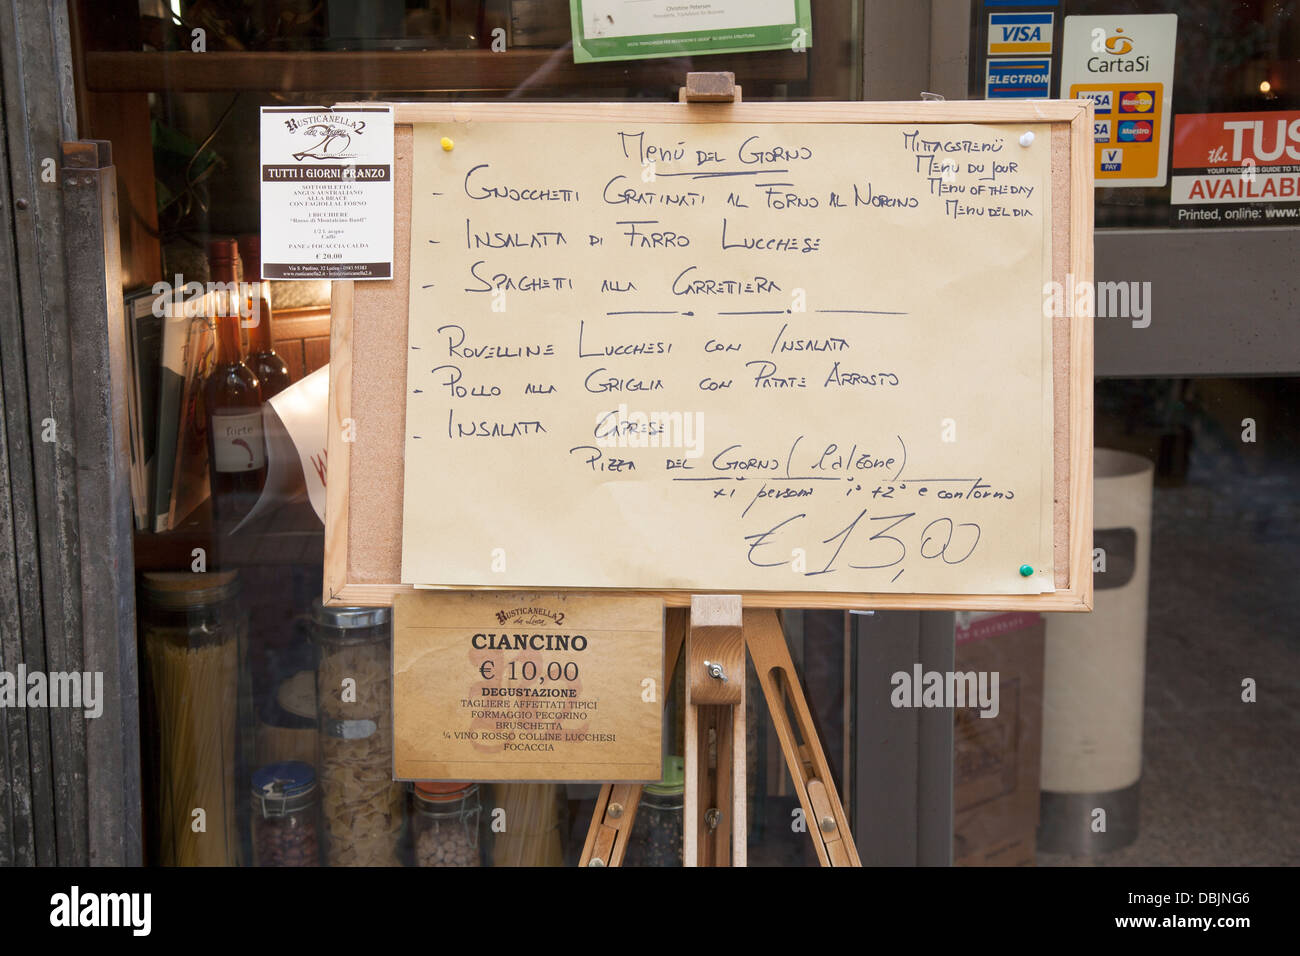 Christine Petersen
VISA
ELECTRON
CartaSi
VISA MasterCard
VISA Maestro
V PAY
the TUS
AVAILABL
Printed, online: www.t
RUSTICANELLA 2
20
TUTTI I GIORNI PRANZO
SOTTOFILETTO
ANGUS AUSTRALIANO
ALLA BRACE
CON FAGIOLI AL FORNO
1 BICCHIERE
"Rosso di Montalcino Banfi"
1/2 l. acqua
Caffè
PANE e FOCACCIA CALDA
€ 20.00
Via S. Paolino, 32 Lucca - 0583 55383
MENÙ DEL GIORNO
MITTAGSMENÜ
MENU DU JOUR
MENU OF THE DAY
MENU DEL DIA
- GNOCCHETTI GRATINATI AL FORNO AL NORCINO
- INSALATA DI FARRO LUCCHESE
- SPAGHETTI ALLA CARRETTIERA
- ROVELLINE LUCCHESI CON INSALATA
- POLLO ALLA GRIGLIA CON PATATE ARROSTO
- INSALATA CAPRESE
PIZZA DEL GIORNO (Calzone)
x1 persona 1° + 2° e contorno
€ 13,00
forte
RUSTICANELLA 2
La Lucca
CIANCINO
€ 10,00
DEGUSTAZIONE
TAGLIERE AFFETTATI TIPICI
FORMAGGIO PECORINO
BRUSCHETTA
¼ VINO ROSSO COLLINE LUCCHESI
FOCACCIA
alamy
a
alamy stock photo
Image ID: DBJNG6
www.alamy.com